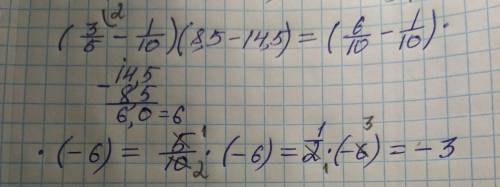 (3/5 ⁽² - 1/10)(8,5 - 14,5) = (6/10 - 1/10) ·
- 14,5
8,5
6,0 = 6
· (-6) = 5 1/10 2 · (-6) = 1/2 1 · (-6 3) = -3